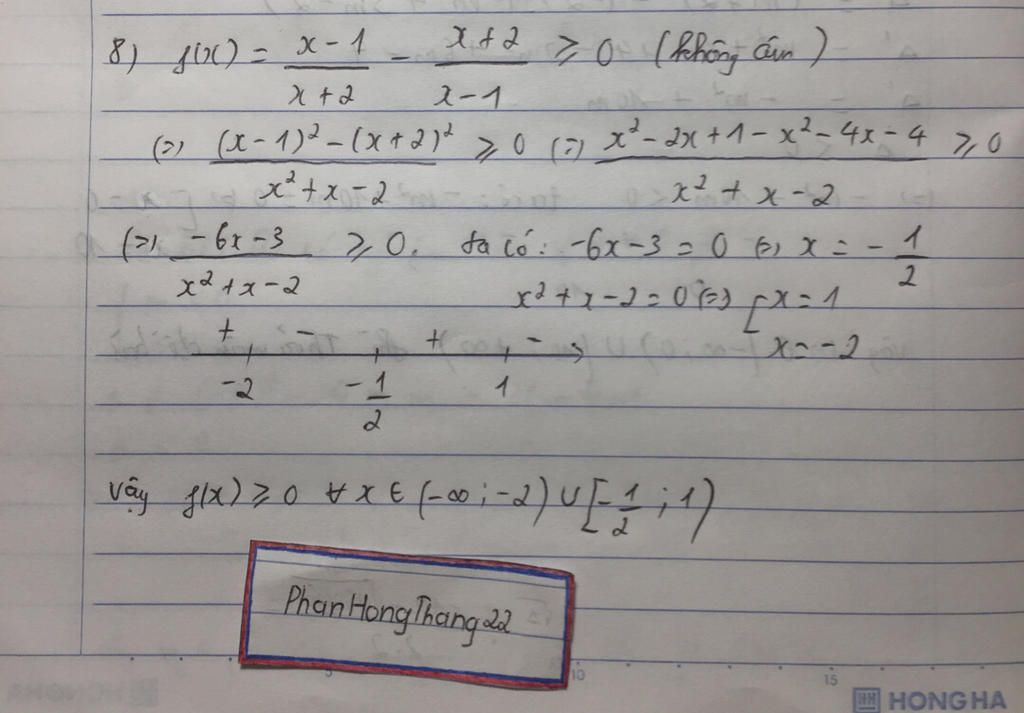 8) f(x) = \frac{x-1}{x+2} - \frac{x+2}{x-1} ≥ 0 (không cần)
(=) \frac{(x-1)^2-(x+2)^2}{x^2+x-2} ≥ 0 (=) \frac{x^2-2x+1-x^2-4x-4}{x^2+x-2} ≥ 0
(=) \frac{-6x-3}{x^2+x-2} ≥ 0. ta có: -6x-3 = 0 (=) x = -\frac{1}{2}
x^2+x-2=0 (=) [x=1
x=-2
+ - + -
-2 -\frac{1}{2} 1
Vậy f(x) ≥ 0 ∀ x ∈ (-∞; -2) ∪ [-\frac{1}{2}; 1)
PhanHongThang22
10 15
HONG HA